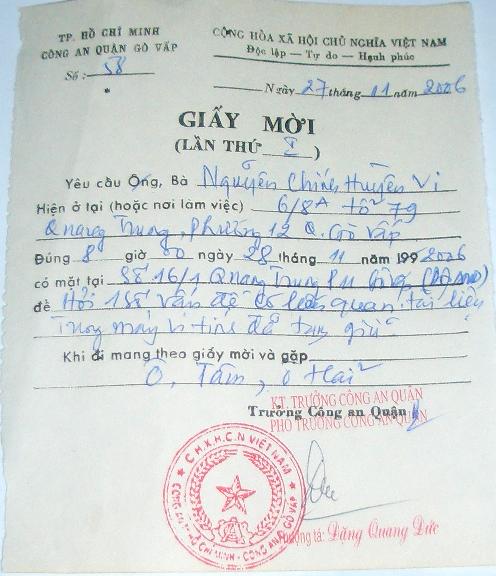 TP. HỒ CHÍ MINH
CÔNG AN QUẬN GÒ VẤP
Số: 58
CỘNG HÒA XÃ HỘI CHỦ NGHĨA VIỆT NAM
Độc lập — Tự do — Hạnh phúc
Ngày 27 tháng 11 năm 2006
GIẤY MỜI
(LẦN THỨ I)
Yêu cầu Ông, Bà Nguyễn Chính Huyền Vi
Hiện ở tại (hoặc nơi làm việc) 6/8A tổ 79
Quang Trung, Phường 12 Q. Gò Vấp
Đúng 8 giờ 00 ngày 28 tháng 11 năm 199 2006
có mặt tại Số 16/1 Quang Trung
để Hỏi 1 số vấn đề có liên quan tài liệu
Trong máy vi tính đã tạm giữ
Khi đi mang theo giấy mời và gặp
Ô, Tám, ô Hai
KT. TRƯỞNG CÔNG AN QUẬN
Trưởng Công an Quận
PHÓ TRƯỞNG CÔNG AN QUẬN
C.H.X.H.C.N VIỆT NAM
CÔNG AN TP HỒ CHÍ MINH - CÔNG AN Q. GÒ VẤP
tá: Đặng Quang Đức